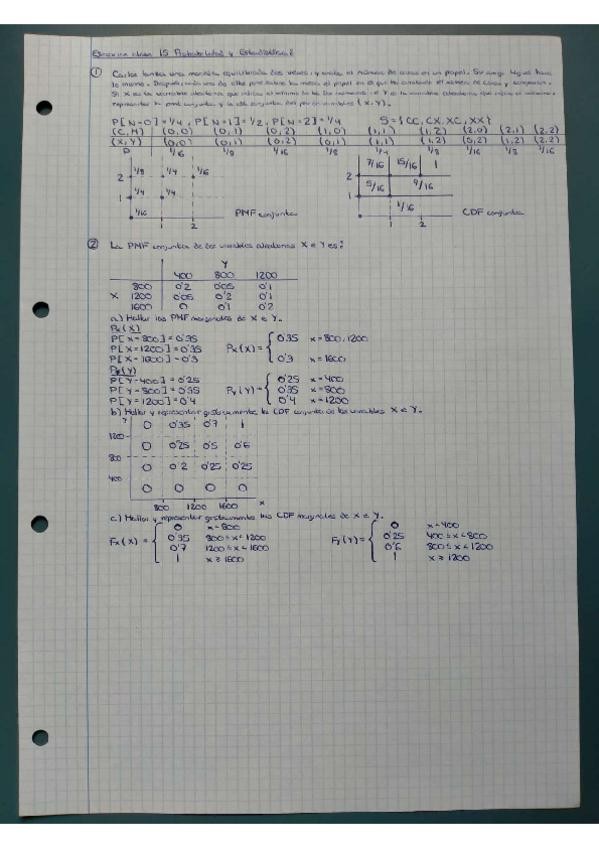 Ejercicios clase 15 Probabilidad y Estadística 2
① Carlos lanza una moneda equilibrada dos veces, y anota el número de caras en un papel. Su amigo hace
lo mismo. Después, cada uno de ellos pone sobre la mesa el papel en el que ha anotado el número de caras y comparan.
Si X es la variable aleatoria que indica el mínimo de los dos números e Y es la variable aleatoria que indica el máximo,
representar la pmf conjunta y la cdf conjunta del par de variables (X,Y).
P[N=0]=1/4, P[N=1]=1/2, P[N=2]=1/4 S={CC, CX, XC, XX}
(C,M) (0,0) (0,1) (0,2) (1,0) (1,1) (1,2) (2,0) (2,1) (2,2)
(X,Y) (0,0) (0,1) (0,2) (0,1) (1,1) (1,2) (0,2) (1,2) (2,2)
P 1/16 1/8 1/16 1/8 1/4 1/8 1/16 1/8 1/16
2 1/8 1/4 1/16
1 1/4 1/4
1/16
1 2
PMF conjunta
7/16 15/16 1
2
5/16 9/16
1
1/16
1 2
CDF conjunta
② La PMF conjunta de dos variables aleatorias X e Y es:
Y
400 800 1200
800 0'2 0'05 0'1
X 1200 0'05 0'2 0'1
1600 0 0'1 0'2
a) Hallar las PMF marginales de X e Y.
Px(X)
P[X=800]=0'35
P[X=1200]=0'35
P[X=1600]=0'3
Px(X)= { 0'35 x=800,1200
0'3 x=1600
Py(Y)
P[Y=400]=0'25
P[Y=800]=0'35
P[Y=1200]=0'4
Py(Y)= { 0'25 x=400
0'35 x=800
0'4 x=1200
b) Hallar y representar gráficamente la CDF conjunta de las variables X e Y.
Y
0 0'35 0'7 1
1200
0 0'25 0'5 0'6
800
0 0'2 0'25 0'25
400
0 0 0 0
800 1200 1600 x
c) Hallar y representar gráficamente las CDF marginales de X e Y.
Fx(X) = { 0 x<800
0'35 800≤x<1200
0'7 1200≤x<1600
1 x≥1600
Fy(Y)= { 0 x<400
0'25 400≤x<800
0'6 800≤x<1200
1 x≥1200